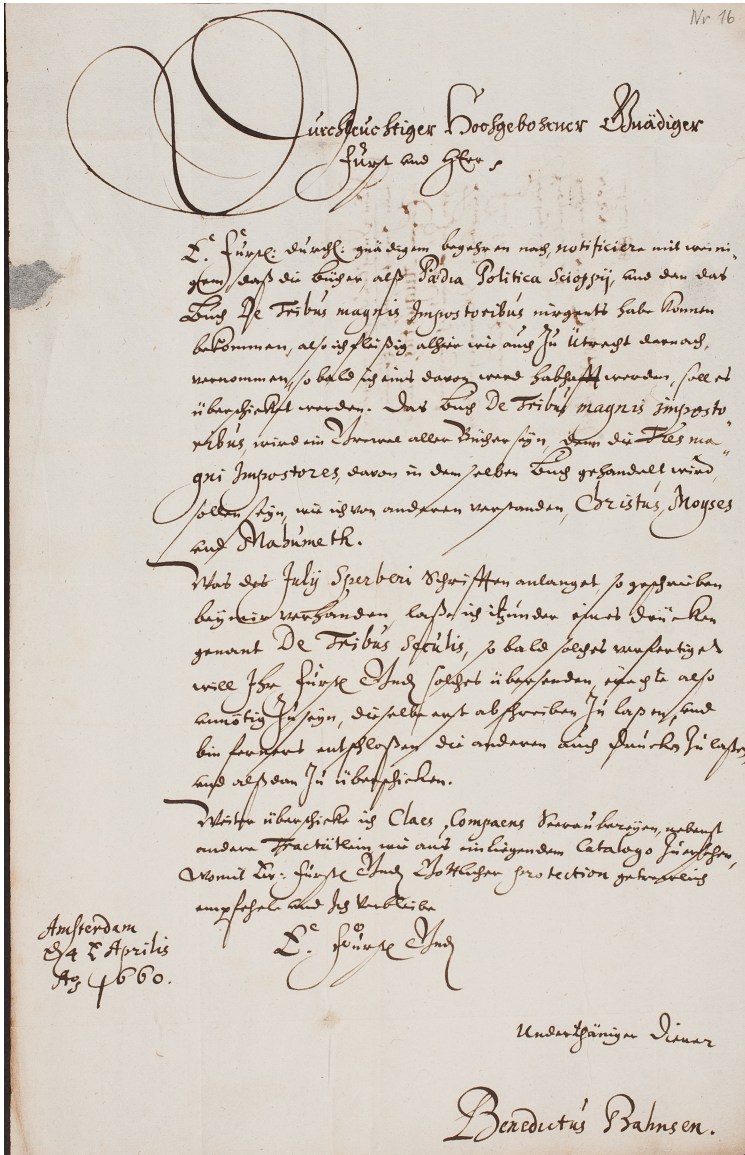 Nr 16
Durchleuchtiger Hochgebohrner Gnädiger
Fürst und HErr,
Ee. Fürstl: durchl: gnädigem begehren nach, notificiere mit weini-
gem, daß die bücher, alß Pædia Politica Scioppij, und dan das
Buch De Tribus magnis Impostoribus nirgents habe können
bekommen, also ich fleißig alhier wie auch Zu Utrecht darnach,
vernommen, so bald ich eins davon werd habhafft werden, soll es
überschicket werden. Das buch De Tribus magnis imposto
ribus, wird ein Grewel aller Bücher seyn, denn die Tres ma-
gni Impostores, davon in dem selben Buch gehandelt wird,
sollen seyn, wie ich von anderen verstanden, Christus, Moyses
und Mahumeth.
Was des Julij Sperberi Schrifften anlanget, so geschrieben
bey mir verhanden, laße ich itzunder eines drücken
genant De Tribus Seculis, so bald solches verfertiget
will Ihr Fürstl Gnd solches übersenden, achte also
unnötig Zu seyn, dieselbe erst abschreiben Zu laßen, und
bin ferners entschloßen die anderen auch drucken Zu laßen,
und alßdan Zu überschicken.
Weiter überschicke ich Claes Compaens Seeraubereyen, nebenst
andere Tractätlein, wie aus einligendem Catalogo Zu ersehen,
Womit Ew: Fürstl Gnd Göttlicher protection getrewlich
empfehle und Ich Verbleibe
Ee. Fürstl Gnd
Amsterdam
Aprilis
Ao 1660.
Underthäniger Diener
Benedictus Bahnsen.